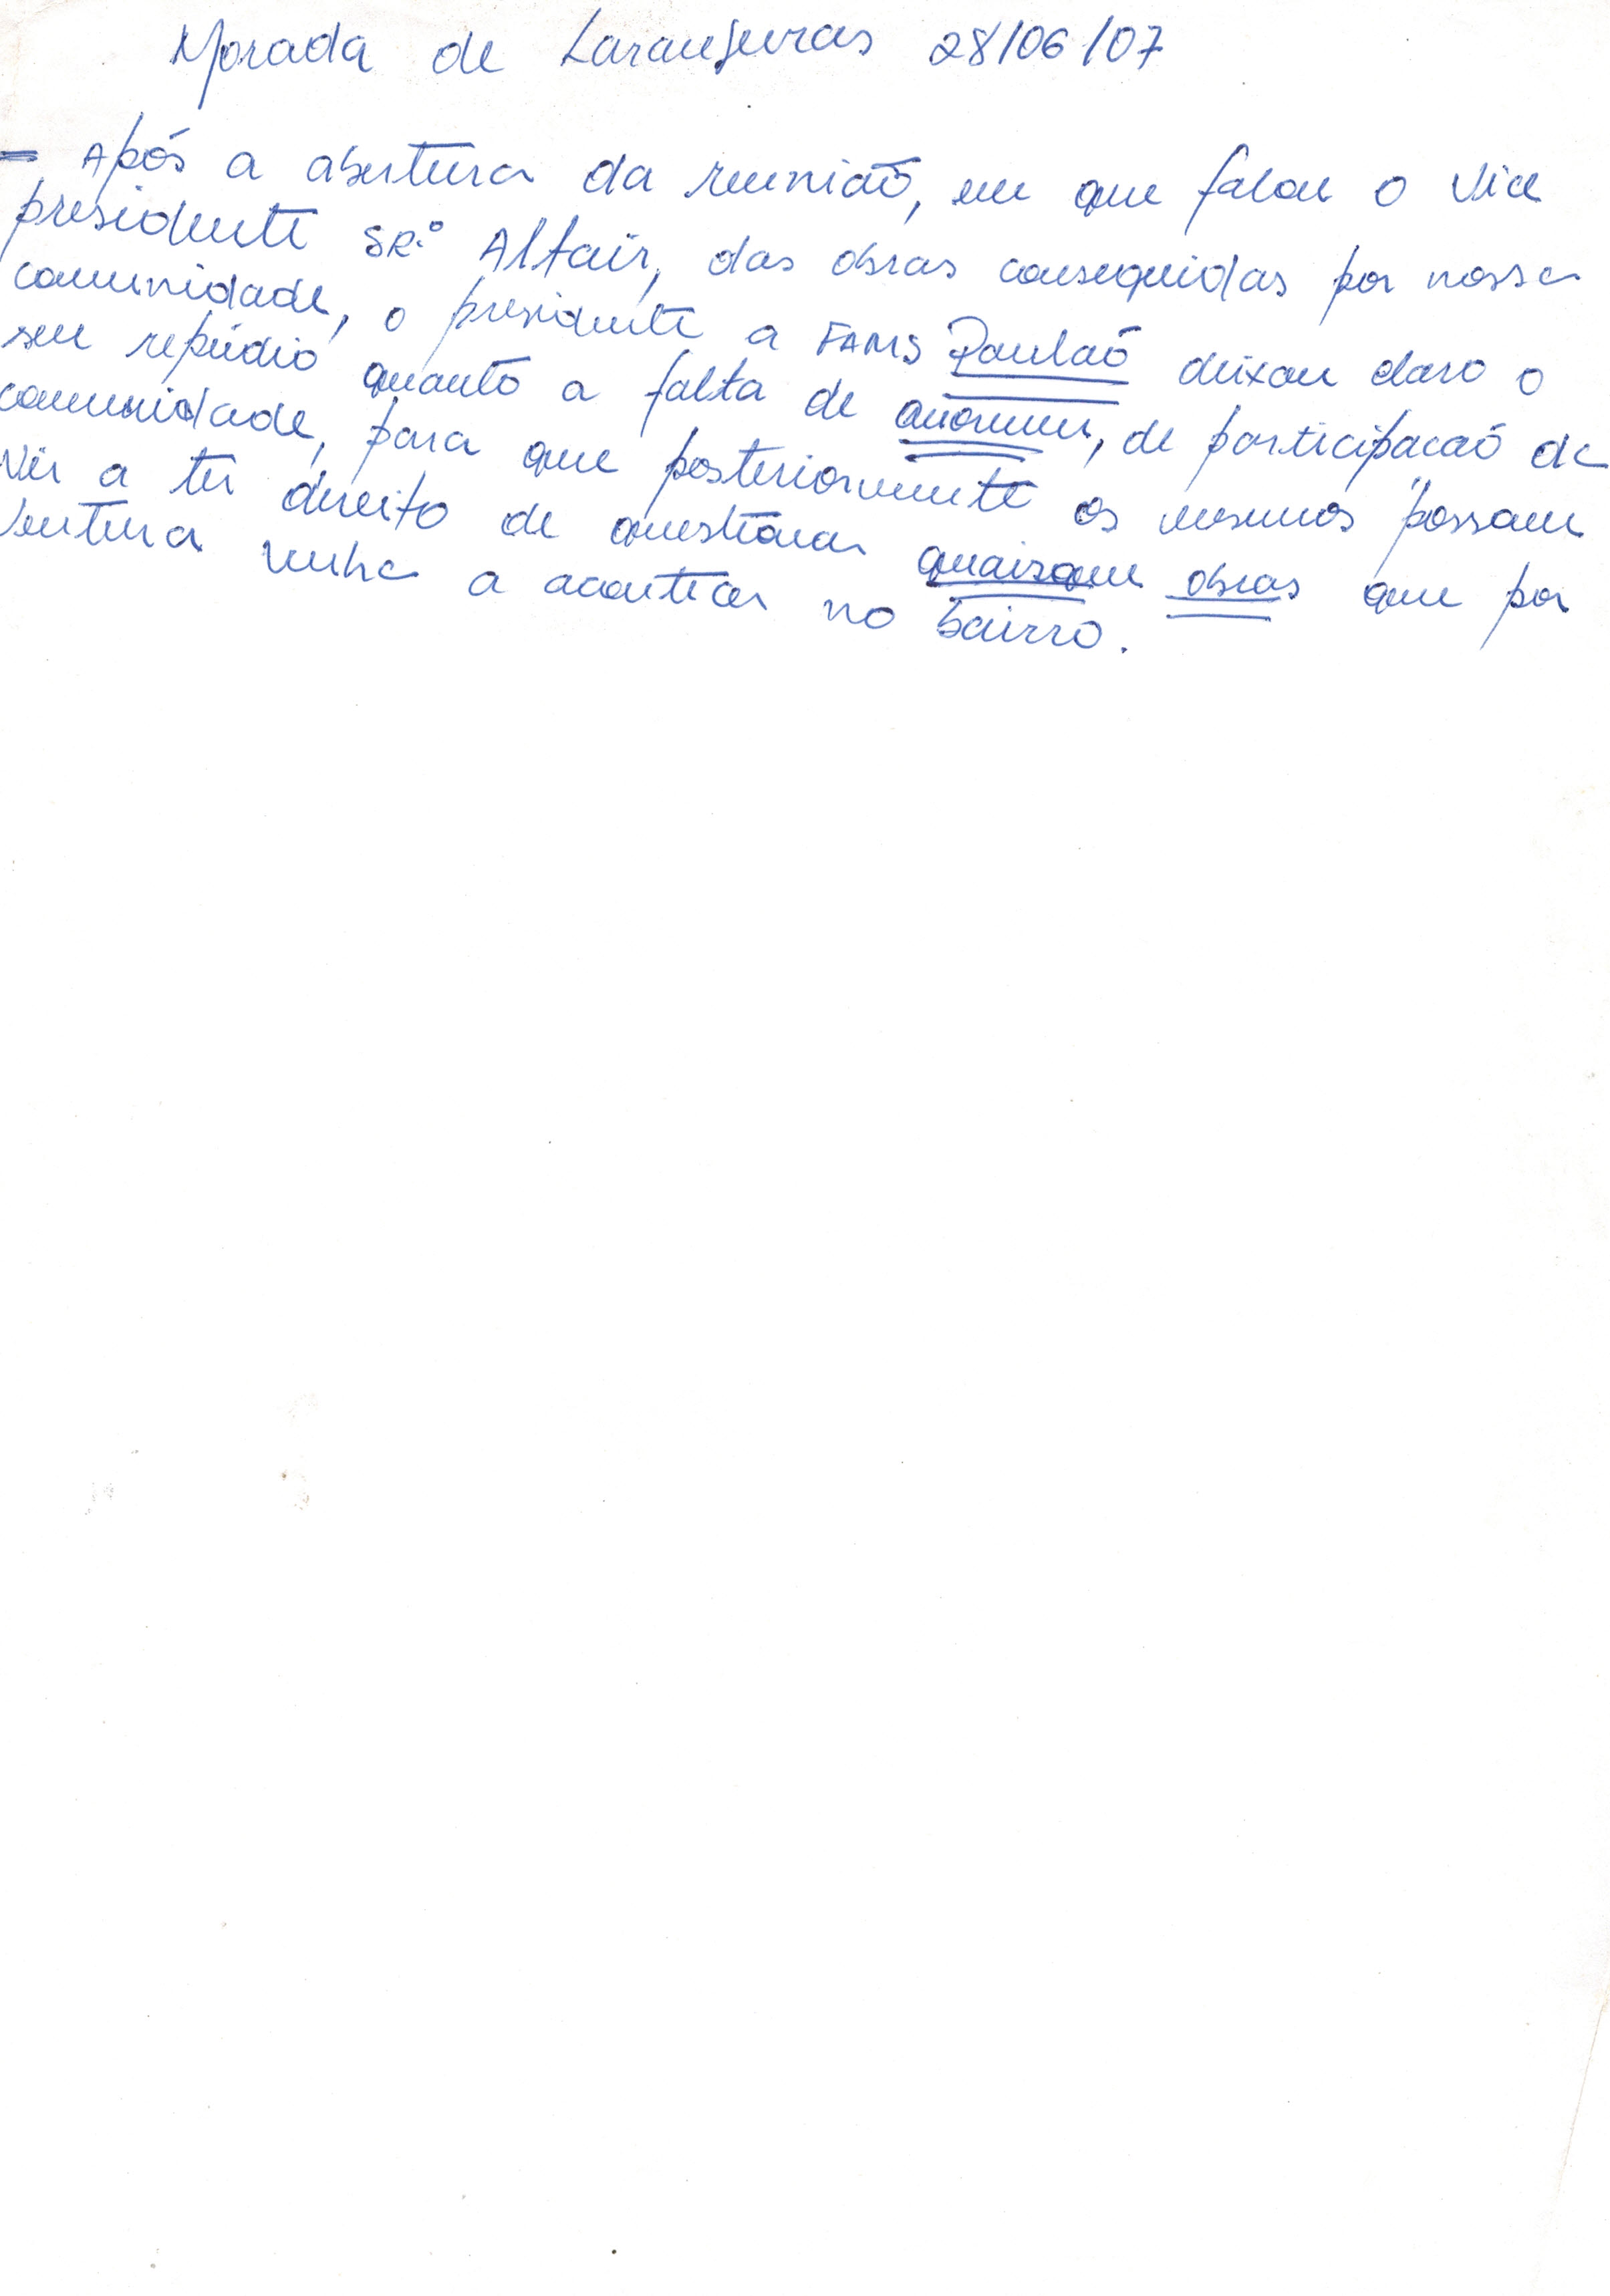 Morada de Laranjeiras 28/06/07
- Após a abertura da reunião, em que falou o Vice
presidente SR.º Altair, das obras conseguidas por nossa
comunidade, o presidente a FAMS Paulaõ deixou claro o
seu repúdio quanto a falta de quorum, de participacaõ da
comunidade, para que posteriormente os mesmos possam
vir a ter direito de questionar quaisquer obras que por
ventura venha a acontecer no bairro.